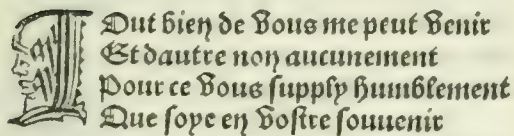 Tout bien de vous me peut venir
Et dautre non aucunement
Pour ce vous supply humblement
Que soye en vostre souuenir